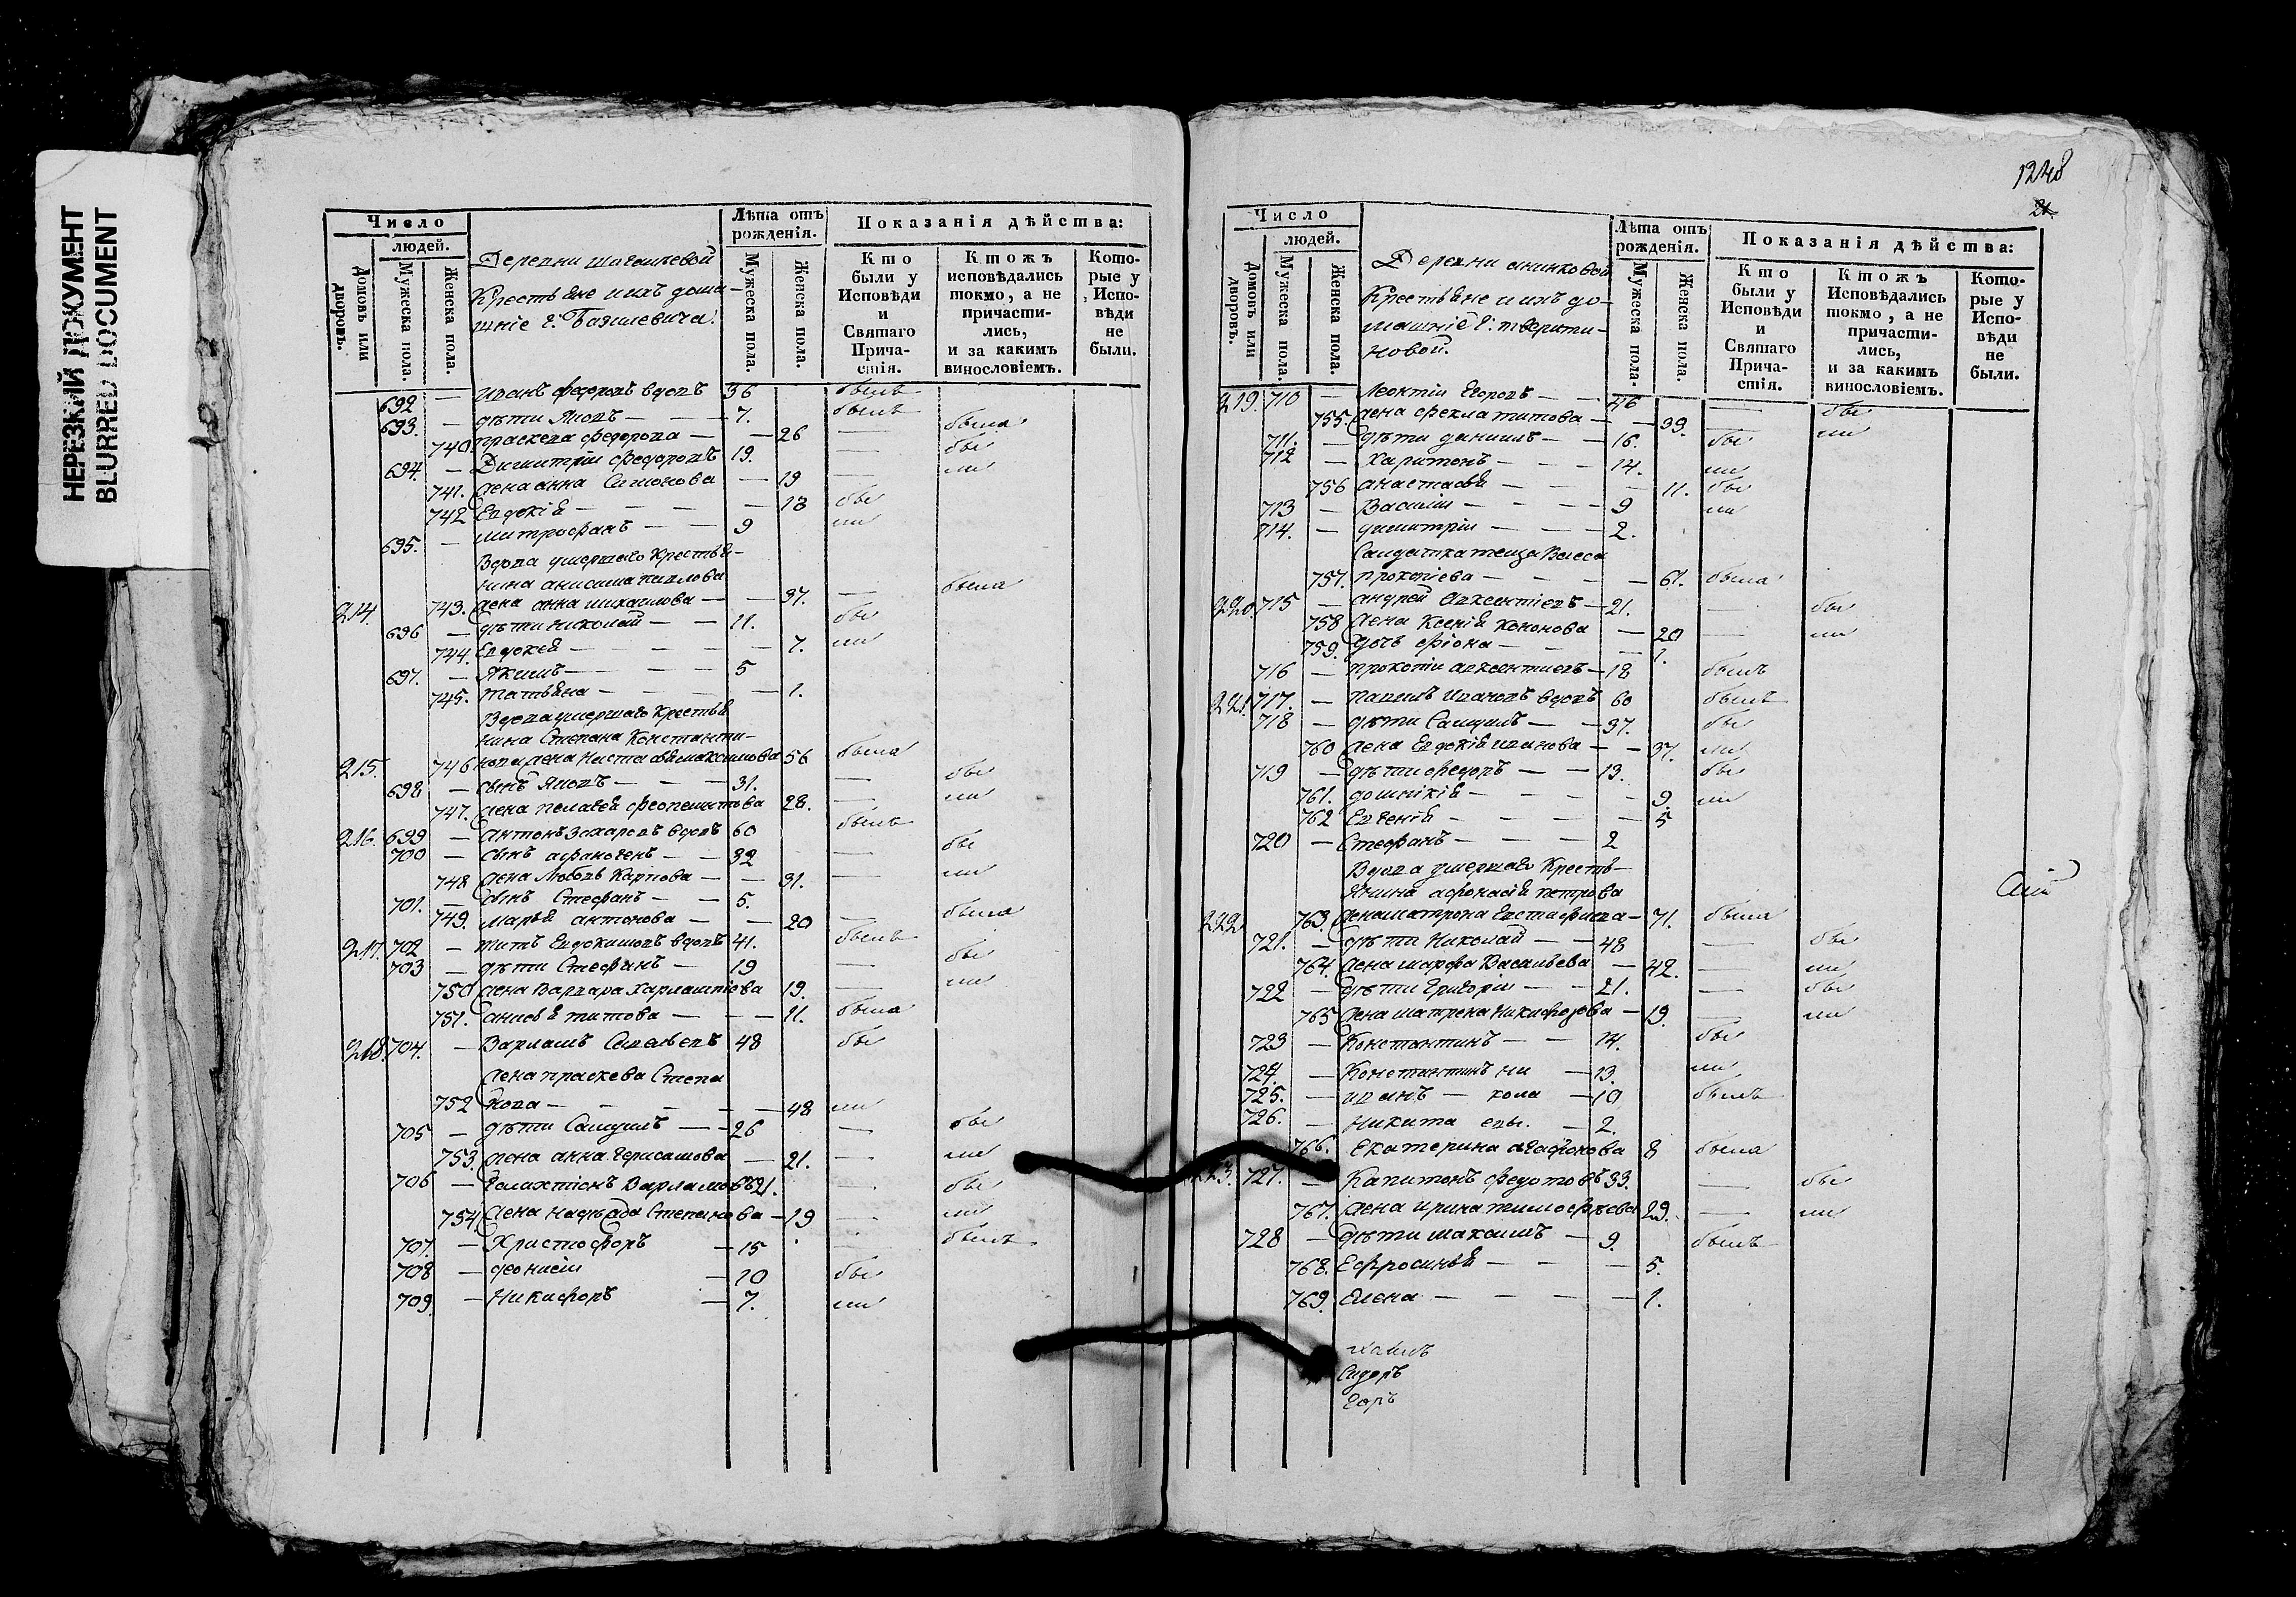 НЕРЕЗКИЙ ДОКУМЕНТ
BLURRED DOCUMENT
Число
людей.
Домовъ или дворовъ.
Мужеска пола.
Женска пола.
Деревни
Крестьяне и ихъ дома-
шніе г.
Лѣта отъ рожденія.
Мужеска пола.
Женска пола.
Показанія дѣйства:
Кто были у Исповѣди и Святаго Причастія.
Ктожъ исповѣдались токмо, а не причастились, и за какимъ винословіемъ.
Которые у Исповѣди не были.
692 — Иванъ Федоровъ вдовъ 36 былъ
693. — дѣти Яковъ — — 7. былъ
740 Праскева Федорова — — 26 — была
694. — Димитрій Федоровъ 19. — бы
741. жена Анна Симонова — 19 — ли
742 Евдокія — — — — 13 бы
695. — Митрофанъ — — 9 ли
Вдова умершаго Крестья-
нина Анисима Павлова
214. 743. жена Анна Михаилова — — 37. — была
696 — дѣти Николай — — 11. бы
744. Евдокея — — — 7. ли
697. — Якимъ — — — 5
745. Татьяна — — — — 1.
Вдова умершаго Крестья
нина Стефана Константи-
215. 746 нова жена Настасья Максимова 56 была
698 — сынъ Яковъ — — 31. — бы
747. жена Пелагея Феопемптова 28. — ли
216. 699 — Антонъ Захаровъ вдовъ 60 былъ
700 — сынъ Афиногенъ — — 32 — бы
748 жена Любовь Карпова — — 31. — ли
701. — сынъ Стефанъ — — 5.
749. Марья Антонова — — 20 — была
217. 702 — Титъ Евдокимовъ вдовъ 41. былъ
703 — дѣти Стефанъ — 19 — бы
750 жена Варвара Харлампіева 19. — ли
751. Анисья Титова — — — 11. была
218. 704. — Варламъ Савельевъ 48 бы
жена Праскева Степа
752 нова — — — — 48 ли
705 — дѣти Самуилъ — — 26 — бы
753. жена Анна Герасимова — 21. — ли
706 — Галактіонъ Варламовъ 21. — бы
754 жена Надежда Степанова — 19 — ли
707. — Христофоръ — 15 — былъ
708 — Деонисій — 10 бы
709. — Никифоръ — 7. ли
1248
21
Число
людей.
Домовъ или дворовъ.
Мужеска пола.
Женска пола.
Деревни Аниковой
Крестьяне и ихъ до-
машніе г: Тверити-
новой.
Лѣта отъ рожденія.
Мужеска пола.
Женска пола.
Показанія дѣйства:
Кто были у Исповѣди и Святаго Причастія.
Ктожъ Исповѣдались токмо, а не причастились, и за какимъ винословіемъ.
Которые у Исповѣди не были.
219. 710 — Леонтій Егоровъ — — 46 — бы
755. жена Фекла Титова — — 39. — ли
711. — дѣти Даніилъ — — 16. бы
712 — Харитонъ — — — 14. ли
756 Анастасья — — — 11. бы
713 — Василій — — — 9 ли
714. — Димитрій — — — 2.
Салдатка теща
757. Прокопіева — — — — 61. была
220. 715 — Андрей Авксентіевъ — 21. — бы
758 жена Ксенія Кононова — 20 — ли
759. дочь Фіона — — — 1.
716 — Прокопій Авксентиевъ — 18 былъ
221. 717. — Павелъ Ивановъ вдовъ 60 былъ
718 — дѣти Самуилъ — — 37. бы
760 жена Евдокія Иванова — — 37. ли
719 — дѣти Федоръ — — 13. бы
761. Домникія — — — — 9. ли
762 Евгенія — — — — 5
720 — Стефанъ — — — 2
Вдова умершаго Кресть-
янина Афонасія Петрова
222 763. жена Матрона Евстафиева — 71. была
721. — дѣти Николай — — 48 — бы
764. жена Марфа Васильева — 42. — ли
722 — дѣти Григорій — — 21. — бы
765 жена Матрена Никифорова — 19. — ли
723 — Константинъ — — 14. бы
724. — Константинъ ни — 13. ли
725. — Иванъ — кола — 10 былъ
726. — Никита евы. — 2.
766. Екатерина Агафонова 8 была
223. 727. — Капитонъ Федотовъ 33. — бы
767. жена Ирина Тимофеева 29. — ли
728 — дѣти Максимъ — 9. былъ
768. Ефросинья — — — 5.
769. Елена — — — — 1.
Сидоръ
Егоръ